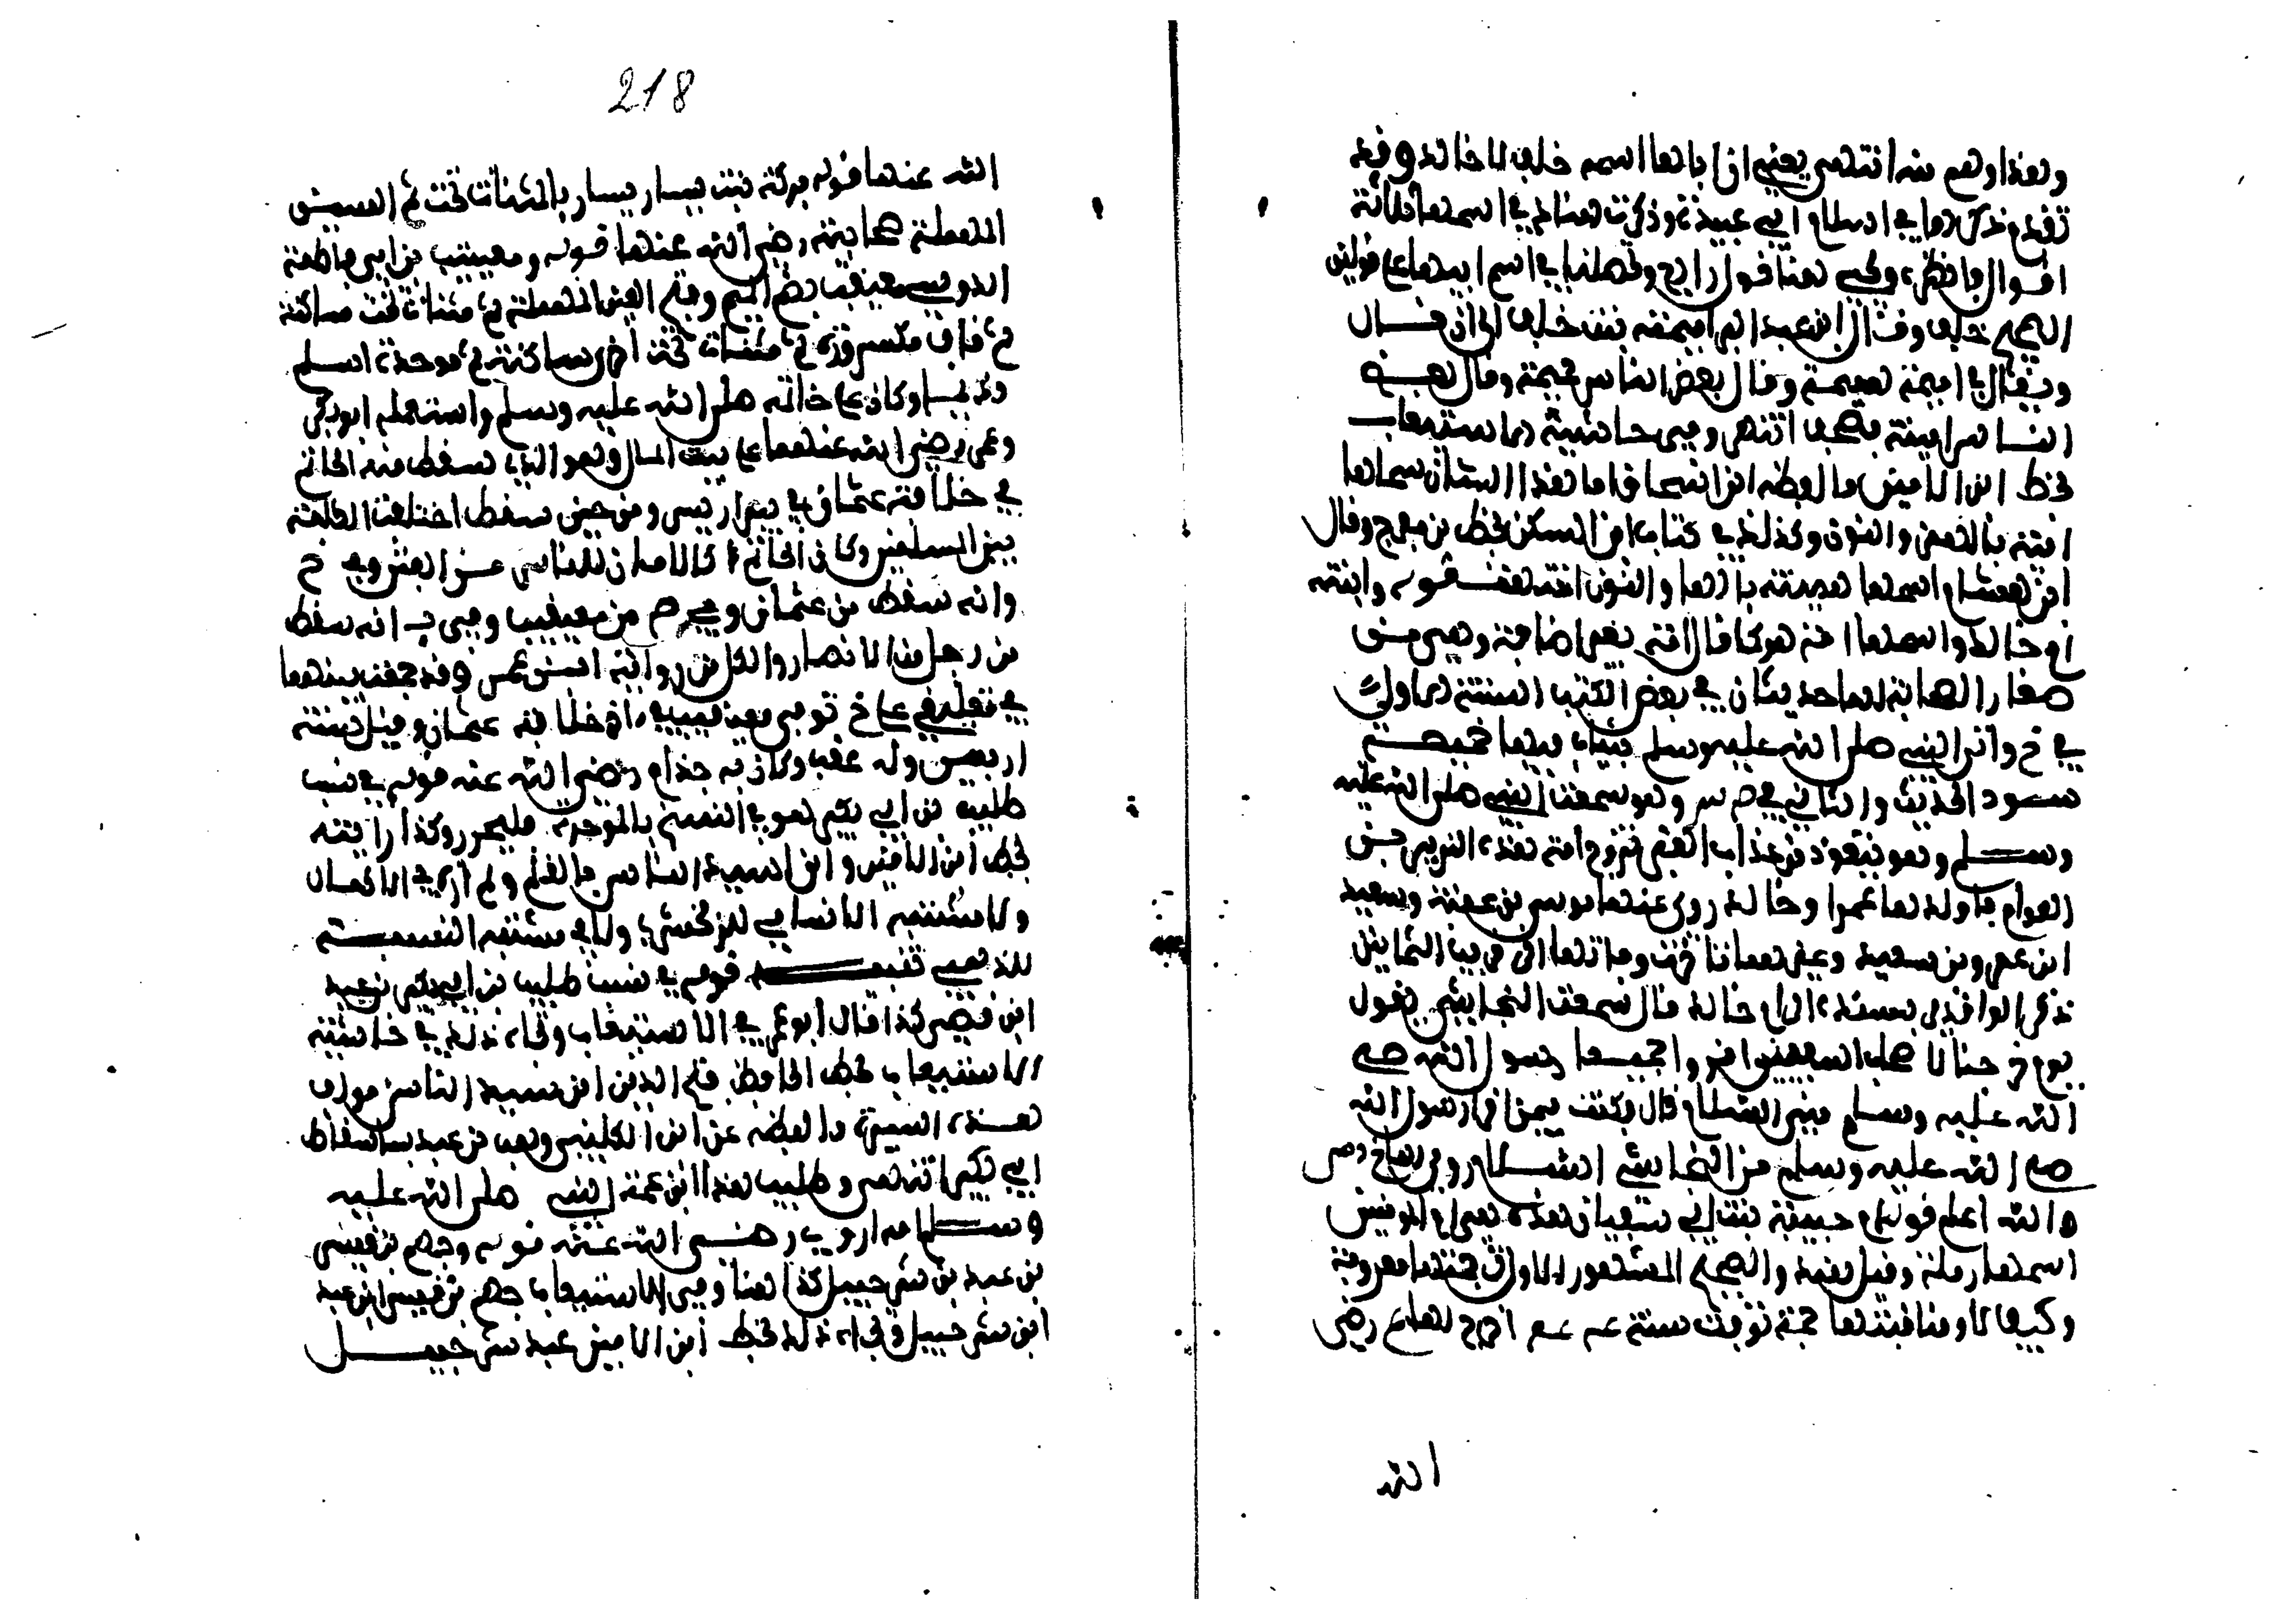 وهذا وهم منه انتهى يعني ان اباها اسمه خلف لا خالد وقد
تقدم ذكرها في اسلام ابي عبيدة وذكرت هنا لم في اسمها ثلاثة
اقوال فانظره ويجيء هنا قول رابع وتحصلنا في اسم ابيها على قولين
الصحيح خلف وقال ابن عبد البر اميمة بنت خلف الى ان قال
ويقال في اميمة هميمة وقال بعض الناس همينة وقال بعض
الناس امينة فصحف انتهى وفي حاشية الاستيعاب
بخط ابن الامين ما لفظه ابن اسحاق اما هذا انسان سماها
امينة بالهمز والنون وكذلك في كتاب ابن السكن بخط بن مفرج وقال
ابن هشام اسمها همينة بالهاء والنون انتهت قوله وابنته
ام خالد واسمها امة هو كما قال امة بغير اضافة وهي من
صغار الصحابة لها حديثان في بعض الكتب الستة الاول
في خ د ان النبي صلى الله عليه وسلم بثياب فيها خميصة
سوداء الحديث والثاني في خ س وهو سمعت النبي صلى الله عليه
وسلم وهو يتعوذ من عذاب القبر تزوج امة هذه الزبير بن
العوام فاولدها عمرا وخالد روى عنها موسى بن عقبة وسعيد
ابن عمرو بن سعيد وعمرها تأخرت وفاتها الى قريب الثمانين
ذكر الواقدي بسنده الى ام خالد قال سمعت النجاشي يقول
يوم خرجنا لاصحاب السفينتين اقرءوا جميعا رسول الله صلى
الله عليه وسلم مني السلام قال فكنت فيمن اقرأ رسول الله
صلى الله عليه وسلم من النجاشي السلام روى لها خ د س
والله اعلم قوله ام حبيبة بنت ابي سفيان هذه هي ام المؤمنين
اسمها رملة وقيل هند والصحيح المشهور الاول ترجمتها معروفة
وكيف لا ومناقبها جمة توفيت سنة اخرج لها ع رضي
الله
218
الله عنها قوله بركة بنت يسار يسار بالمثناة تحت ثم السين
المهملة صحابية رضي الله عنها قوله ومعيقيب بن ابي فاطمة
الدوسي معيقيب بضم الميم وفتح العين المهملة ثم مثناة تحت ساكنة
ثم قاف مكسورة ثم مثناة تحت اخرى ساكنة ثم موحدة اسلم
قديما وكان على خاتمه صلى الله عليه وسلم واستعمله ابو بكر
وعمر رضي الله عنهما على بيت المال وهو الذي سقط منه الخاتم
في خلافة عثمان في بير اريس ومن حين سقط اختلفت الكلمة
بين المسلمين وكان الخاتم كالامان للناس من الفتن وفي خ
وانه سقط من عثمان وفي م من معيقيب وفي انه سقط
من رجل من الانصار والكل من رواية ابن عمر وقد جمعت بينهما
في تعليقي على خ توفي معيقيب في اخر خلافة عثمان وقيل سنة
اربعين وله عقب وكان به جذام رضي الله عنه قوله في نسب
طليب بن ابي كبير هو في النسخ بالموحدة فليحرر وكذا رايته
بخط ابن الامين وابن سيد الناس بالقلم ولم اره في الاكمال
ولا مشتبه الانساب للزمخشري ولا في مشتبه النسبة
للذهبي تنبيه قوله في نسب طليب بن ابي كبير بن عبد
ابن قصي كذا قال ابو عمر في الاستيعاب وتجاه ذلك في حاشية
الاستيعاب بخط الحافظ فتح الدين ابن سيد الناس مؤلف
هذه السيرة ما لفظه عن ابن الكلبي وهب بن عبد باسقاط
ابي كبير انتهى وطليب هذا ابن عمة النبي صلى الله عليه
وسلم امه اروى رضي الله عنه قوله وجهم بن قيس
بن عبد بن شرحبيل كذا هنا وفي الاستيعاب جهم بن قيس ابن عبد
ابن شرحبيل وتجاه ذلك بخط ابن الامين عبد شرحبيل